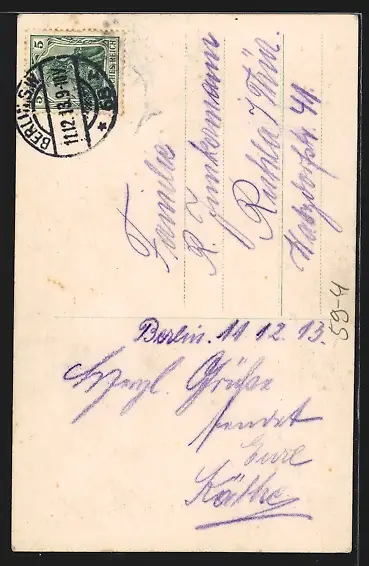 5
DEUTSCHES REICH
BERLIN S.W.
11.12.13.9-10
Familie
R. Junkermann
Ruhla i/Thür.
Berlin. 11.12.13.
Herzl. Grüße
sendet
Eure
Käthe
59-4